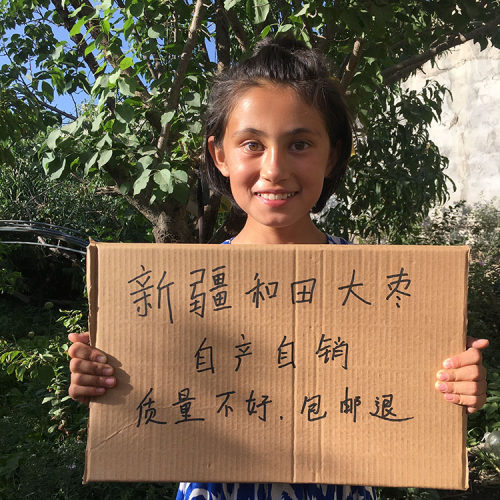 新疆和田大枣
自产自销
质量不好.包邮退